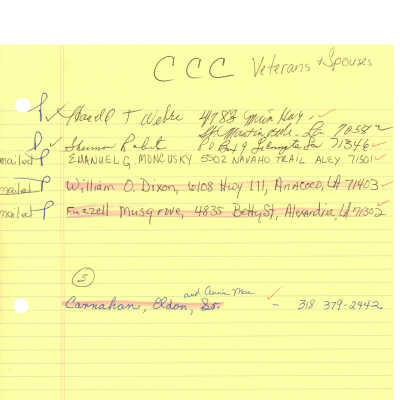 CCC Veterans + Spouses
P ✓ Harold T Weber 4783 Main Hwy
St. Martinville, La 70582
P ✓ Sherman P.O. Box 9 La 71346 ✓
mailed P EMANUEL G MONCUSKY 5502 NAVAHO TRAIL ALEX 71301 ✓
mailed P William O. Dixon, 6108 Hwy 111, Anacoco, LA 71403 ✓
mailed P Furzell Musgrove, 4835 Betty St, Alexandria, LA 71302 ✓
5
and Annie Mae
Carnahan, Eldon, Sr. - 318 379-2442